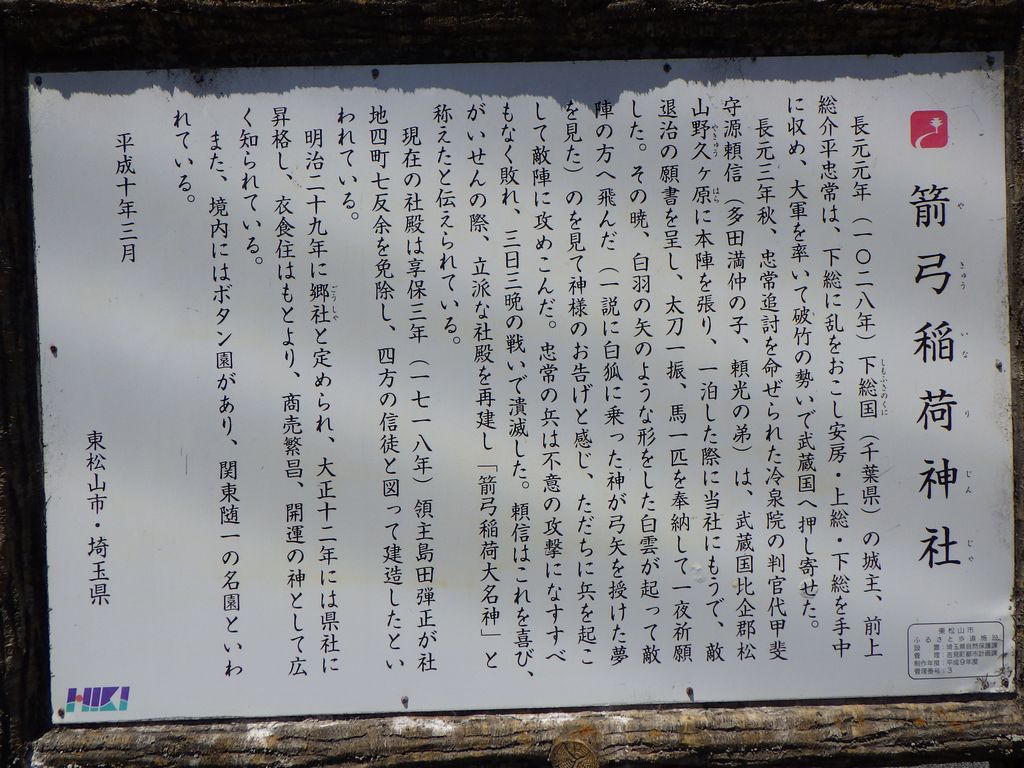 箭弓稲荷神社
や きゅう い な り じん じゃ
長元元年（一〇二八年）下総国（千葉県）の城主、前上
しもふさのくに
総介平忠常は、下総に乱をおこし安房・上総・下総を手中
に収め、大軍を率いて破竹の勢いで武蔵国へ押し寄せた。
長元三年秋、忠常追討を命ぜられた冷泉院の判官代甲斐
守源頼信（多田満仲の子、頼光の弟）は、武蔵国比企郡松
山野久ヶ原に本陣を張り、一泊した際に当社にもうで、敵
やきゅう はら
退治の願書を呈し、太刀一振、馬一匹を奉納して一夜祈願
した。その暁、白羽の矢のような形をした白雲が起って敵
陣の方へ飛んだ（一説に白狐に乗った神が弓矢を授けた夢
を見た）のを見て神様のお告げと感じ、ただちに兵を起こ
して敵陣に攻めこんだ。忠常の兵は不意の攻撃になすすべ
もなく敗れ、三日三晩の戦いで潰滅した。頼信はこれを喜び、
がいせんの際、立派な社殿を再建し「箭弓稲荷大名神」と
称えたと伝えられている。
現在の社殿は享保三年（一七一八年）領主島田弾正が社
地四町七反余を免除し、四方の信徒と図って建造したとい
われている。
明治二十九年に郷社と定められ、大正十二年には県社に
ごうしゃ
昇格し、衣食住はもとより、商売繁昌、開運の神として広
く知られている。
また、境内にはボタン園があり、関東随一の名園といわ
れている。
平成十年三月
東松山市・埼玉県
東松山市
ふるさと歩道施設
設置：埼玉県自然保護課
管理：吉見町都市計画課
制作年度：平成9年度
管理番号：3
HIKI